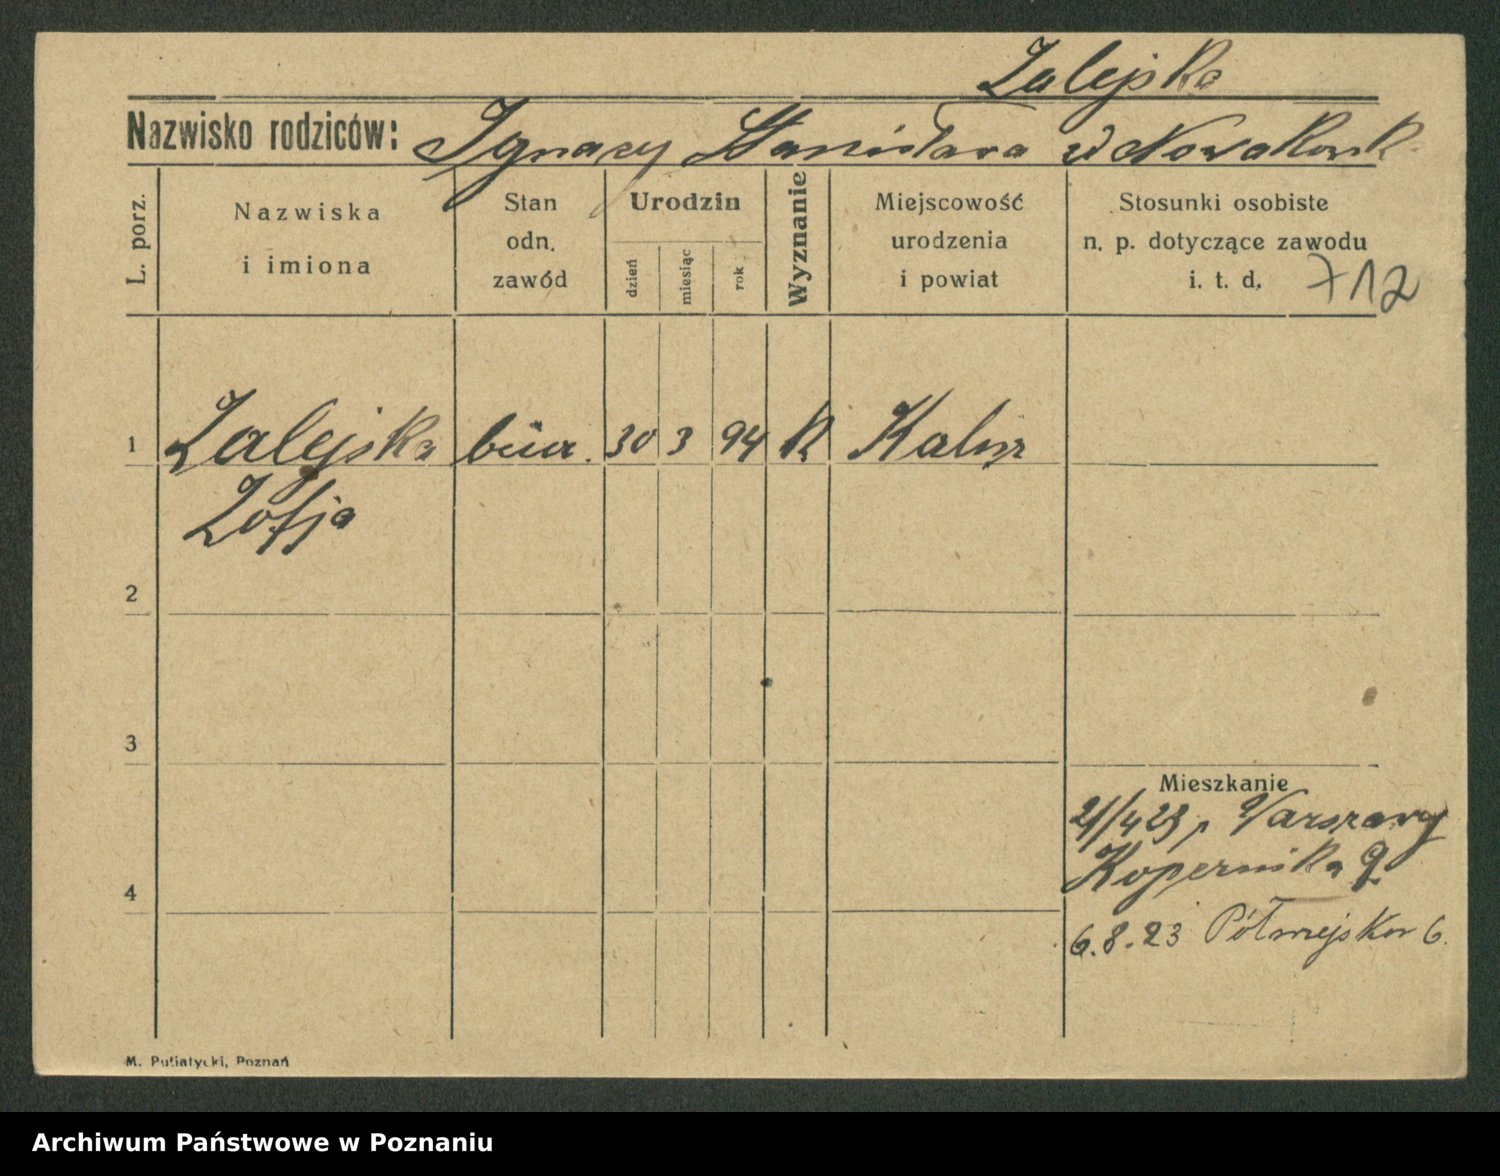 Zalejska
Nazwisko rodziców: Ignacy Stanisława z Nowakowsk.
L. porz.
Nazwiska
i imiona
Stan
odn.
zawód
Urodzin
dzień
miesiąc
rok
Wyznanie
Miejscowość
urodzenia
i powiat
Stosunki osobiste
n. p. dotyczące zawodu
i. t. d.
712
1 Zalejska biur. 30 3 94 K Kalisz
Zofja
2
3
Mieszkanie
21/4 23 Warszawy
Kopernika 9
4
6.8.23 Półwiejska 6.
M. Putiatycki, Poznań
Archiwum Państwowe w Poznaniu